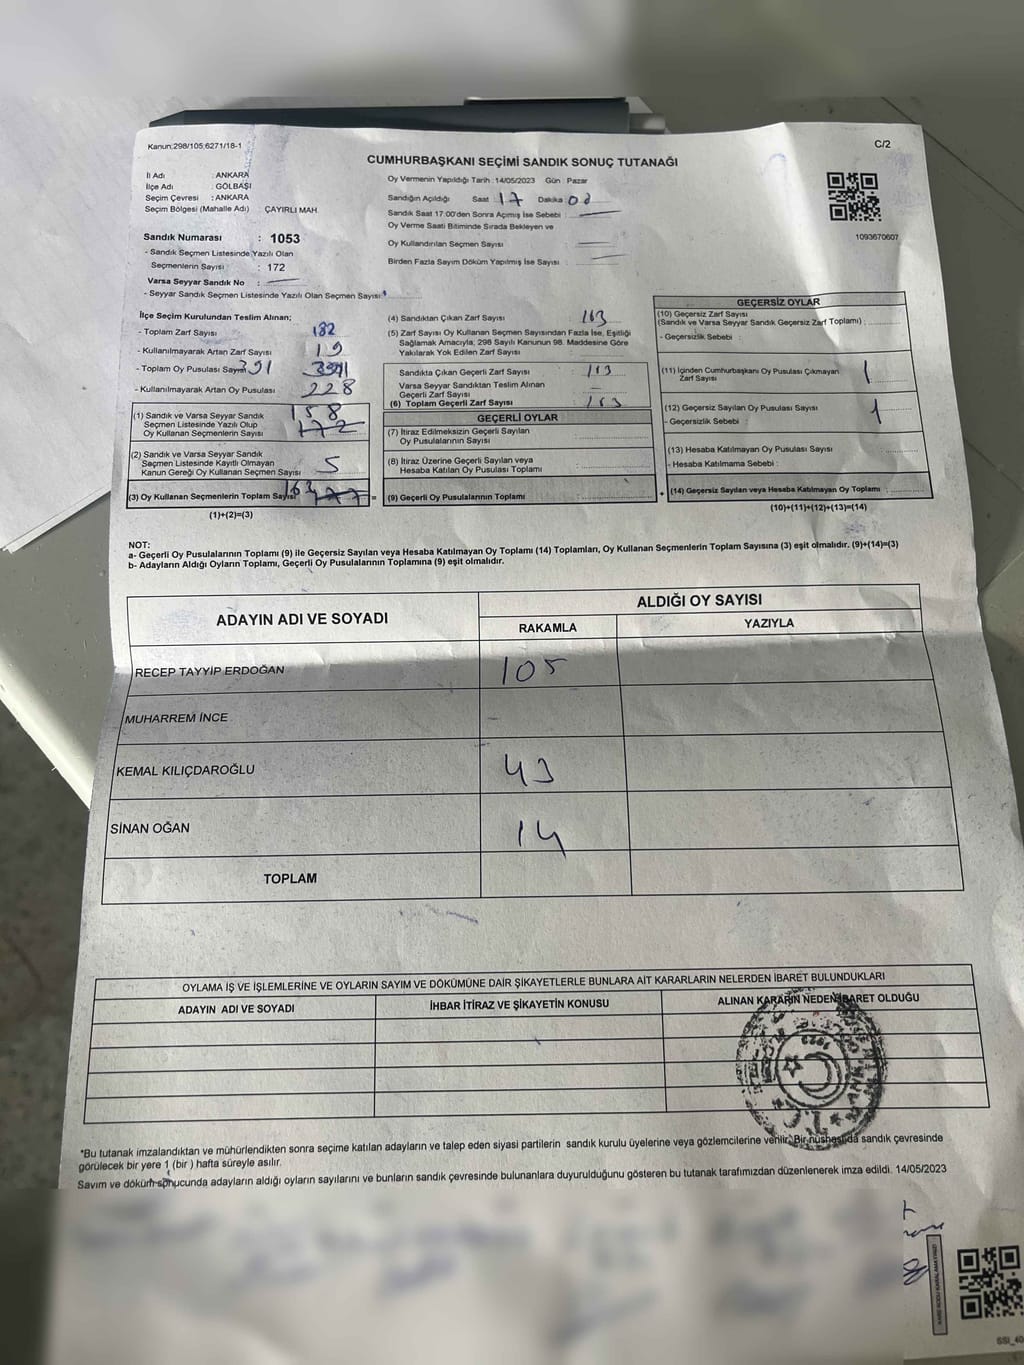 Kanun:298/105;6271/18-1
C/2
CUMHURBAŞKANI SEÇİMİ SANDIK SONUÇ TUTANAĞI
İl Adı : ANKARA
İlçe Adı : GÖLBAŞI
Seçim Çevresi : ANKARA
Seçim Bölgesi (Mahalle Adı) ÇAYIRLI MAH.
Sandık Numarası : 1053
- Sandık Seçmen Listesinde Yazılı Olan
Seçmenlerin Sayısı : 172
Varsa Seyyar Sandık No :
- Seyyar Sandık Seçmen Listesinde Yazılı Olan Seçmen Sayısı:
Oy Vermenin Yapıldığı Tarih :14/05/2023 Gün : Pazar
Sandığın Açıldığı Saat : 17 Dakika
Sandık Saat 17:00'den Sonra Açımış İse Sebebi :
Oy Verme Saati Bitiminde Sırada Bekleyen ve
Oy Kullandırılan Seçmen Sayısı :
Birden Fazla Sayım Döküm Yapılmış İse Sayısı :
1093670607
İlçe Seçim Kurulundan Teslim Alınan;
- Toplam Zarf Sayısı 182
- Kullanılmayarak Artan Zarf Sayısı 19
- Toplam Oy Pusulası Sayısı 391
- Kullanılmayarak Artan Oy Pusulası 228
(1) Sandık ve Varsa Seyyar Sandık 158
Seçmen Listesinde Yazılı Olup 172
Oy Kullanan Seçmenlerin Sayısı
(2) Sandık ve Varsa Seyyar Sandık
Seçmen Listesinde Kayıtlı Olmayan 5
Kanun Gereği Oy Kullanan Seçmen Sayısı
(3) Oy Kullanan Seçmenlerin Toplam Sayısı 163 177 =
(1)+(2)=(3)
(4) Sandıktan Çıkan Zarf Sayısı : 163
(5) Zarf Sayısı Oy Kullanan Seçmen Sayısından Fazla İse, Eşitliği
Sağlamak Amacıyla, 298 Sayılı Kanunun 98. Maddesine Göre
Yakılarak Yok Edilen Zarf Sayısı :
Sandıkta Çıkan Geçerli Zarf Sayısı : 163
Varsa Seyyar Sandıktan Teslim Alınan
Geçerli Zarf Sayısı : —
(6) Toplam Geçerli Zarf Sayısı : 163
GEÇERLİ OYLAR
(7) İtiraz Edilmeksizin Geçerli Sayılan
Oy Pusulalarının Sayısı :
(8) İtiraz Üzerine Geçerli Sayılan veya
Hesaba Katılan Oy Pusulası Toplamı :
(9) Geçerli Oy Pusulalarının Toplamı : +
GEÇERSİZ OYLAR
(10) Geçersiz Zarf Sayısı
(Sandık ve Varsa Seyyar Sandık Geçersiz Zarf Toplamı) :
- Geçersizlik Sebebi :
(11) İçinden Cumhurbaşkanı Oy Pusulası Çıkmayan
Zarf Sayısı : 1
(12) Geçersiz Sayılan Oy Pusulası Sayısı : 1
- Geçersizlik Sebebi :
(13) Hesaba Katılmayan Oy Pusulası Sayısı :
- Hesaba Katılmama Sebebi :
(14) Geçersiz Sayılan veya Hesaba Katılmayan Oy Toplamı :
(10)+(11)+(12)+(13)=(14)
NOT:
a- Geçerli Oy Pusulalarının Toplamı (9) ile Geçersiz Sayılan veya Hesaba Katılmayan Oy Toplamı (14) Toplamları, Oy Kullanan Seçmenlerin Toplam Sayısına (3) eşit olmalıdır. (9)+(14)=(3)
b- Adayların Aldığı Oyların Toplamı, Geçerli Oy Pusulalarının Toplamına (9) eşit olmalıdır.
ADAYIN ADI VE SOYADI
ALDIĞI OY SAYISI
RAKAMLA YAZIYLA
RECEP TAYYİP ERDOĞAN 105
MUHARREM İNCE –
KEMAL KILIÇDAROĞLU 43
SİNAN OĞAN 14
TOPLAM
OYLAMA İŞ VE İŞLEMLERİNE VE OYLARIN SAYIM VE DÖKÜMÜNE DAİR ŞİKAYETLERLE BUNLARA AİT KARARLARIN NELERDEN İBARET BULUNDUKLARI
ADAYIN ADI VE SOYADI İHBAR İTİRAZ VE ŞİKAYETİN KONUSU ALINAN KARARIN NEDEN İBARET OLDUĞU
*Bu tutanak imzalandıktan ve mühürlendikten sonra seçime katılan adayların ve talep eden siyasi partilerin sandık kurulu üyelerine veya gözlemcilerine verilir. Bir nüshesi da sandık çevresinde
görülecek bir yere 1 (bir ) hafta süreyle asılır.
Sayım ve döküm sonucunda adayların aldığı oyların sayılarını ve bunların sandık çevresinde bulunanlara duyurulduğunu gösteren bu tutanak tarafımızdan düzenlenerek imza edildi. 14/05/2023
KARE KODU KARALAMAYINIZ!
SSI_40